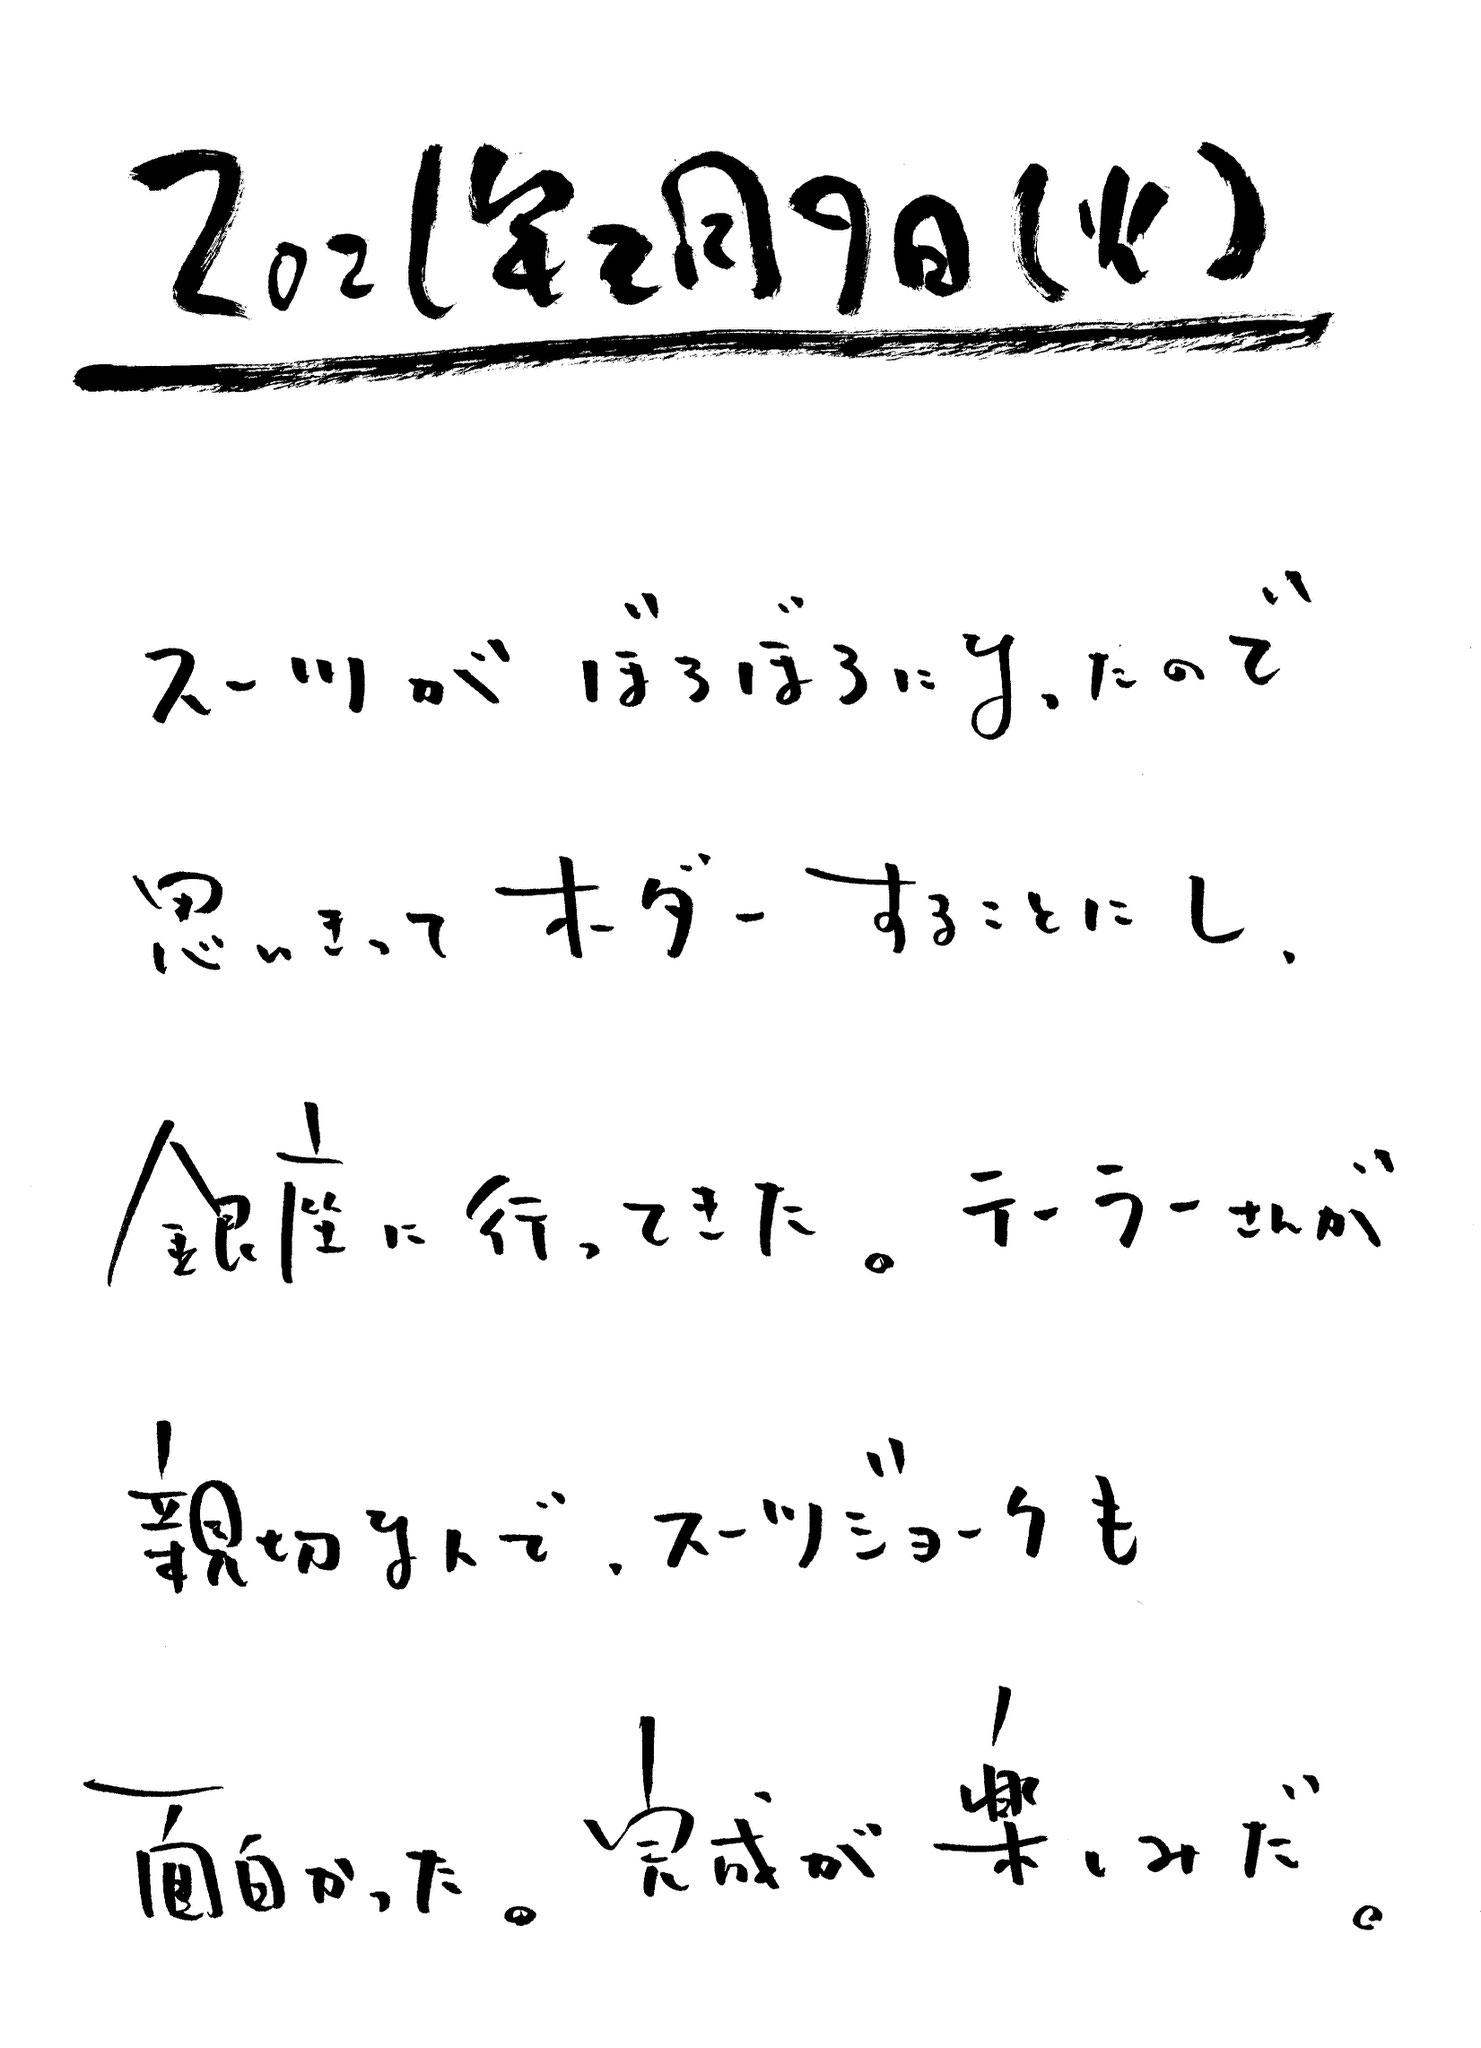 2021年2月9日(火)
スーツがぼろぼろになったので
思いきってオーダーすることにし、
銀座に行ってきた。テーラーさんが
親切な人で、スーツジョークも
面白かった。完成が楽しみだ。